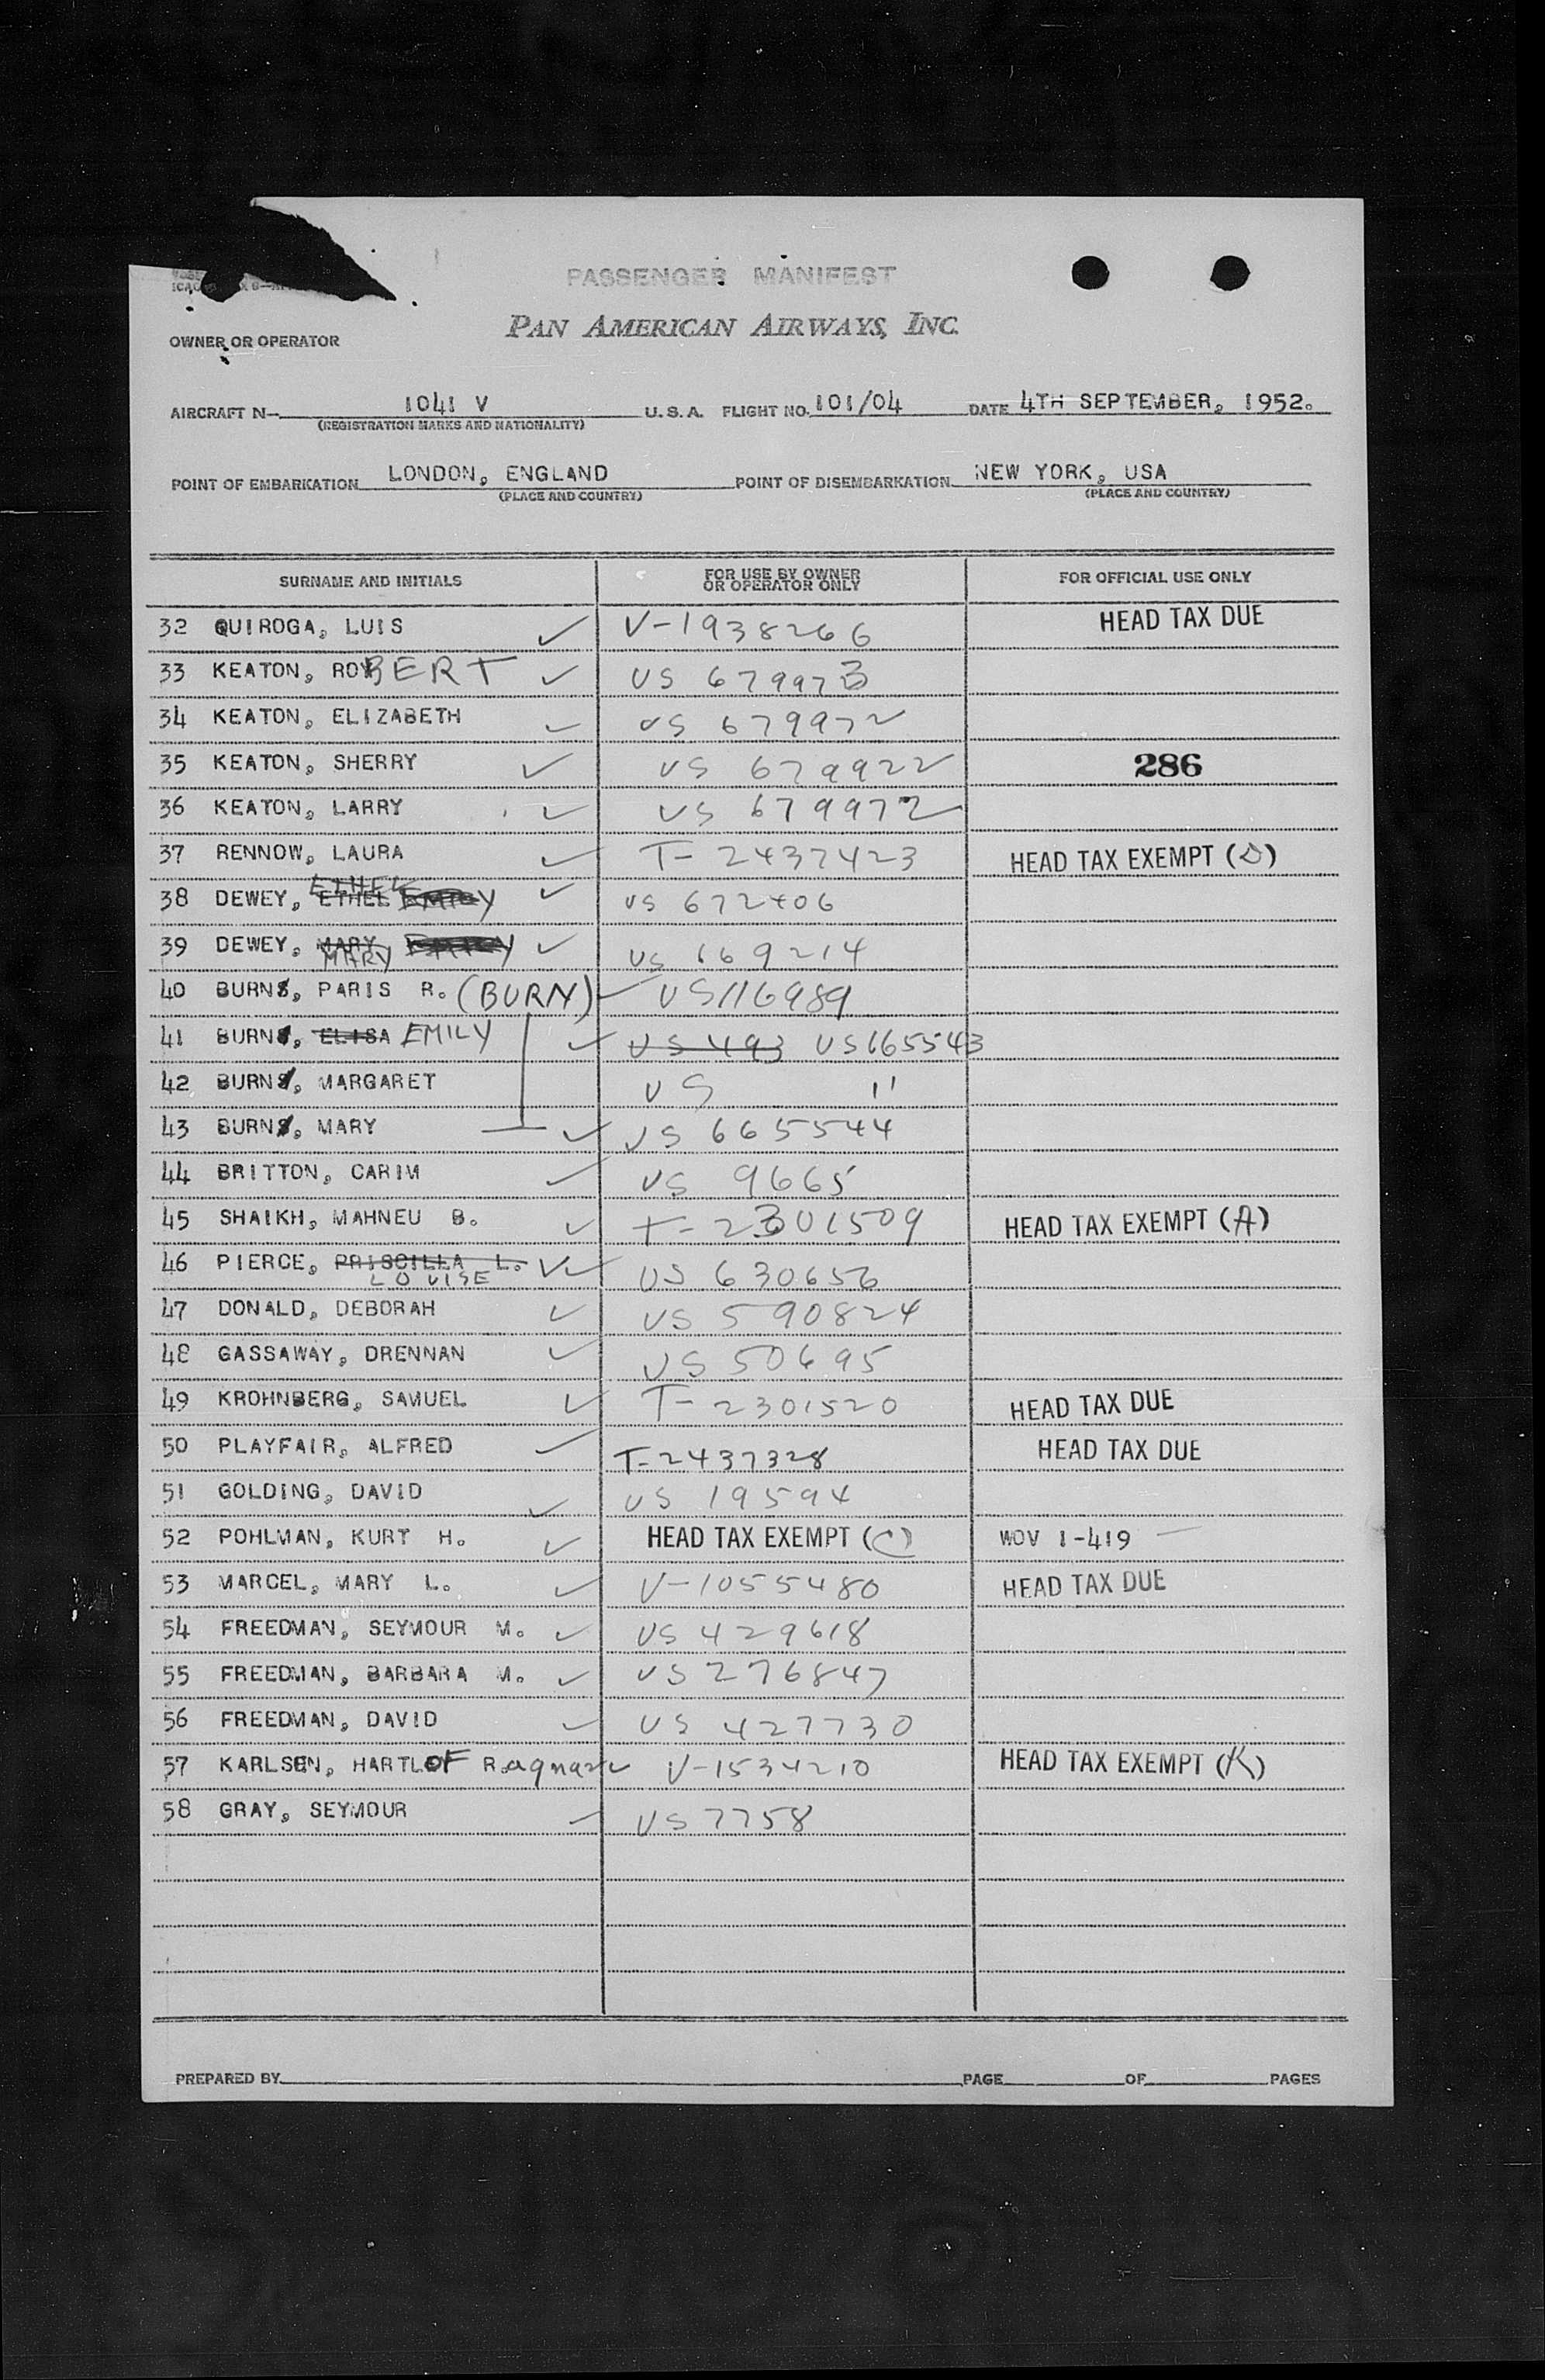 PASSENGER MANIFEST
PAN AMERICAN AIRWAYS, INC.
OWNER OR OPERATOR
AIRCRAFT N- 1041 V U. S. A. FLIGHT NO. 101/04 DATE 4TH SEPTEMBER, 1952.
(REGISTRATION MARKS AND NATIONALITY)
POINT OF EMBARKATION LONDON, ENGLAND POINT OF DISEMBARKATION NEW YORK, USA
(PLACE AND COUNTRY) (PLACE AND COUNTRY)
SURNAME AND INITIALS FOR USE BY OWNER OR OPERATOR ONLY FOR OFFICIAL USE ONLY
32 QUIROGA, LUIS V-1938266 HEAD TAX DUE
33 KEATON, ROBERT US 679973
34 KEATON, ELIZABETH US 679972
35 KEATON, SHERRY US 679922 286
36 KEATON, LARRY US 679972
37 RENNOW, LAURA T-2437423 HEAD TAX EXEMPT (D)
38 DEWEY, ETHEL ETHEL US 672406
39 DEWEY, MARY MARY US 169214
40 BURNS, PARIS R. (BURN) US116989
41 BURNS, ELISA EMILY US 493 US165543
42 BURNS, MARGARET US "
43 BURNS, MARY US 665544
44 BRITTON, CARIM US 9665
45 SHAIKH, MAHNEU B. T-2301509 HEAD TAX EXEMPT (A)
46 PIERCE, PRISCILLA L. LOUISE US 630656
47 DONALD, DEBORAH US 590824
48 GASSAWAY, DRENNAN US 50695
49 KROHNBERG, SAMUEL T-2301520 HEAD TAX DUE
50 PLAYFAIR, ALFRED T-2437328 HEAD TAX DUE
51 GOLDING, DAVID US 19594
52 POHLMAN, KURT H. HEAD TAX EXEMPT (C) WOV 1-419
53 MARCEL, MARY L. V-1055480 HEAD TAX DUE
54 FREEDMAN, SEYMOUR M. US 429618
55 FREEDMAN, BARBARA M. US 276847
56 FREEDMAN, DAVID US 427730
57 KARLSEN, HARTLOF Ragnar V-1534210 HEAD TAX EXEMPT (K)
58 GRAY, SEYMOUR US 7758
PREPARED BY PAGE OF PAGES